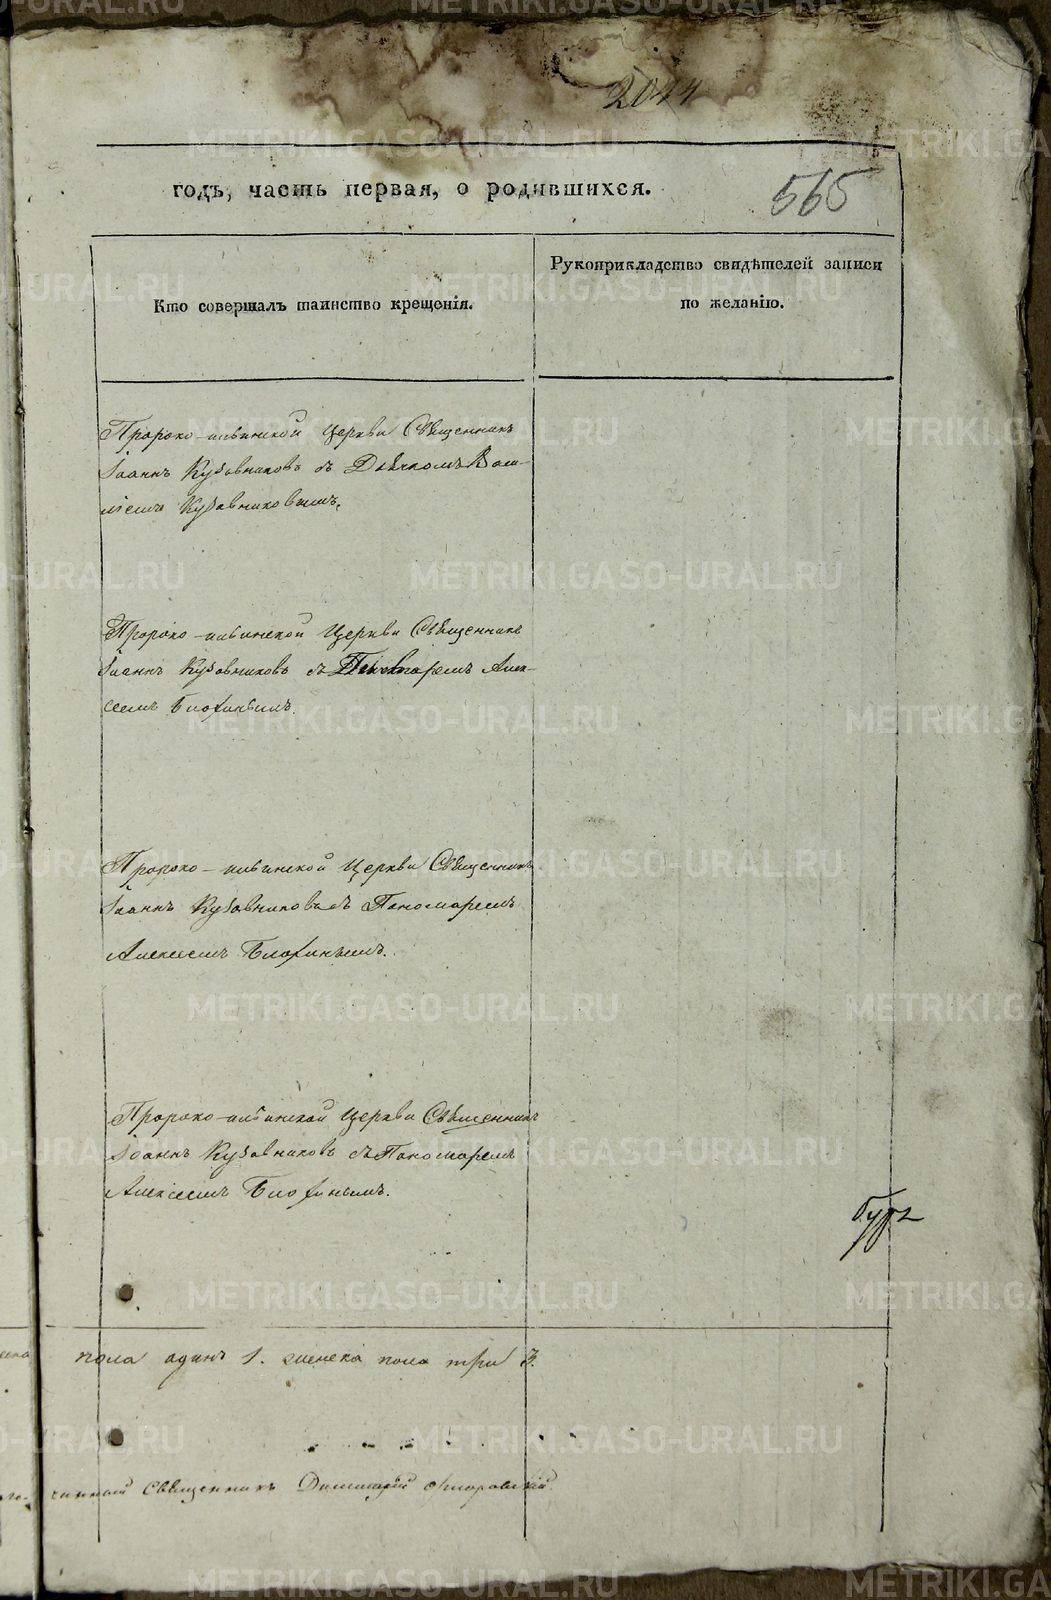 2044
годъ, часть первая, о родившихся.
565
Кто совершалъ таинство крещенія.
Рукоприкладство свидѣтелей записи
по желанію.
Пророко-ильинской Церкви Священникъ
Іоаннъ Кузовниковъ съ Дьячкомъ Васи-
ліемъ Кузовниковымъ.
Пророко-ильинской Церкви Священникъ
Іоаннъ Кузовниковъ съ Пономаремъ Алек-
сеемъ
Пророко-ильинской Церкви Священникъ
Іоаннъ Кузовниковъ съ Пономаремъ
Алексеемъ
Пророко-ильинской Церкви Священникъ
Іоаннъ Кузовниковъ съ Пономаремъ
Алексеемъ
пола одинъ 1. женска пола три 3.
чинный Священникъ Димитрій
METRIKI.GASO-URAL.RU